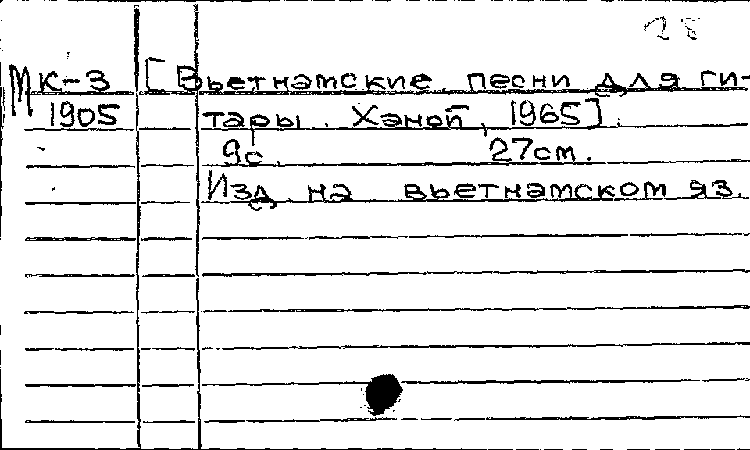 28
МК-3 [Вьетнамские песни для ги-
1905 тары. Ханой, 1965].
9с. 27см.
Изд. на вьетнамском яз.